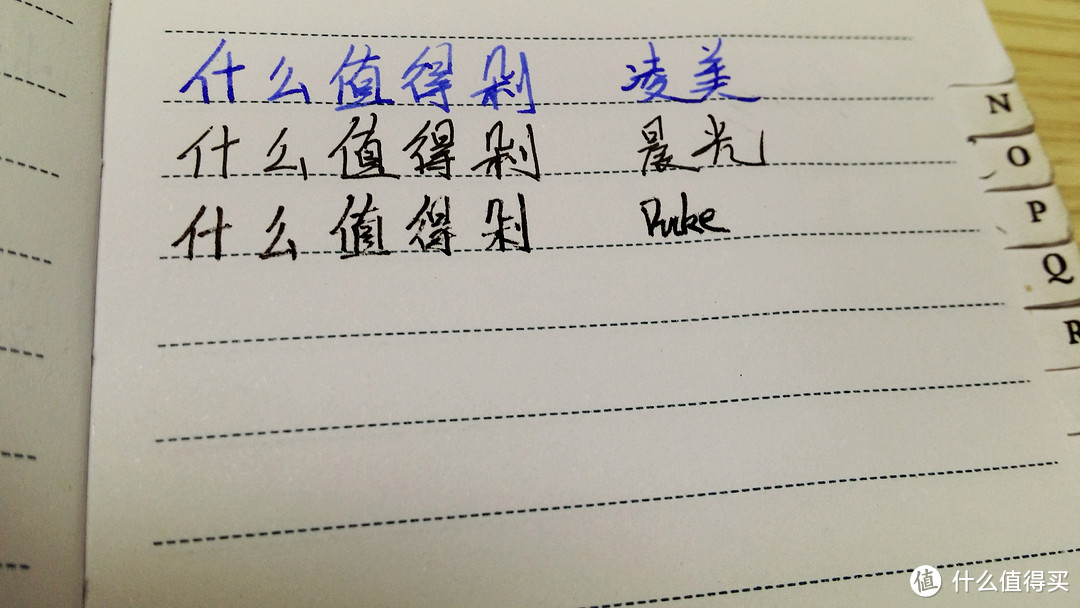 什么值得剁 凌美
什么值得剁 晨光
什么值得剁 Duke
N
O
P
Q
R
值 什么值得买